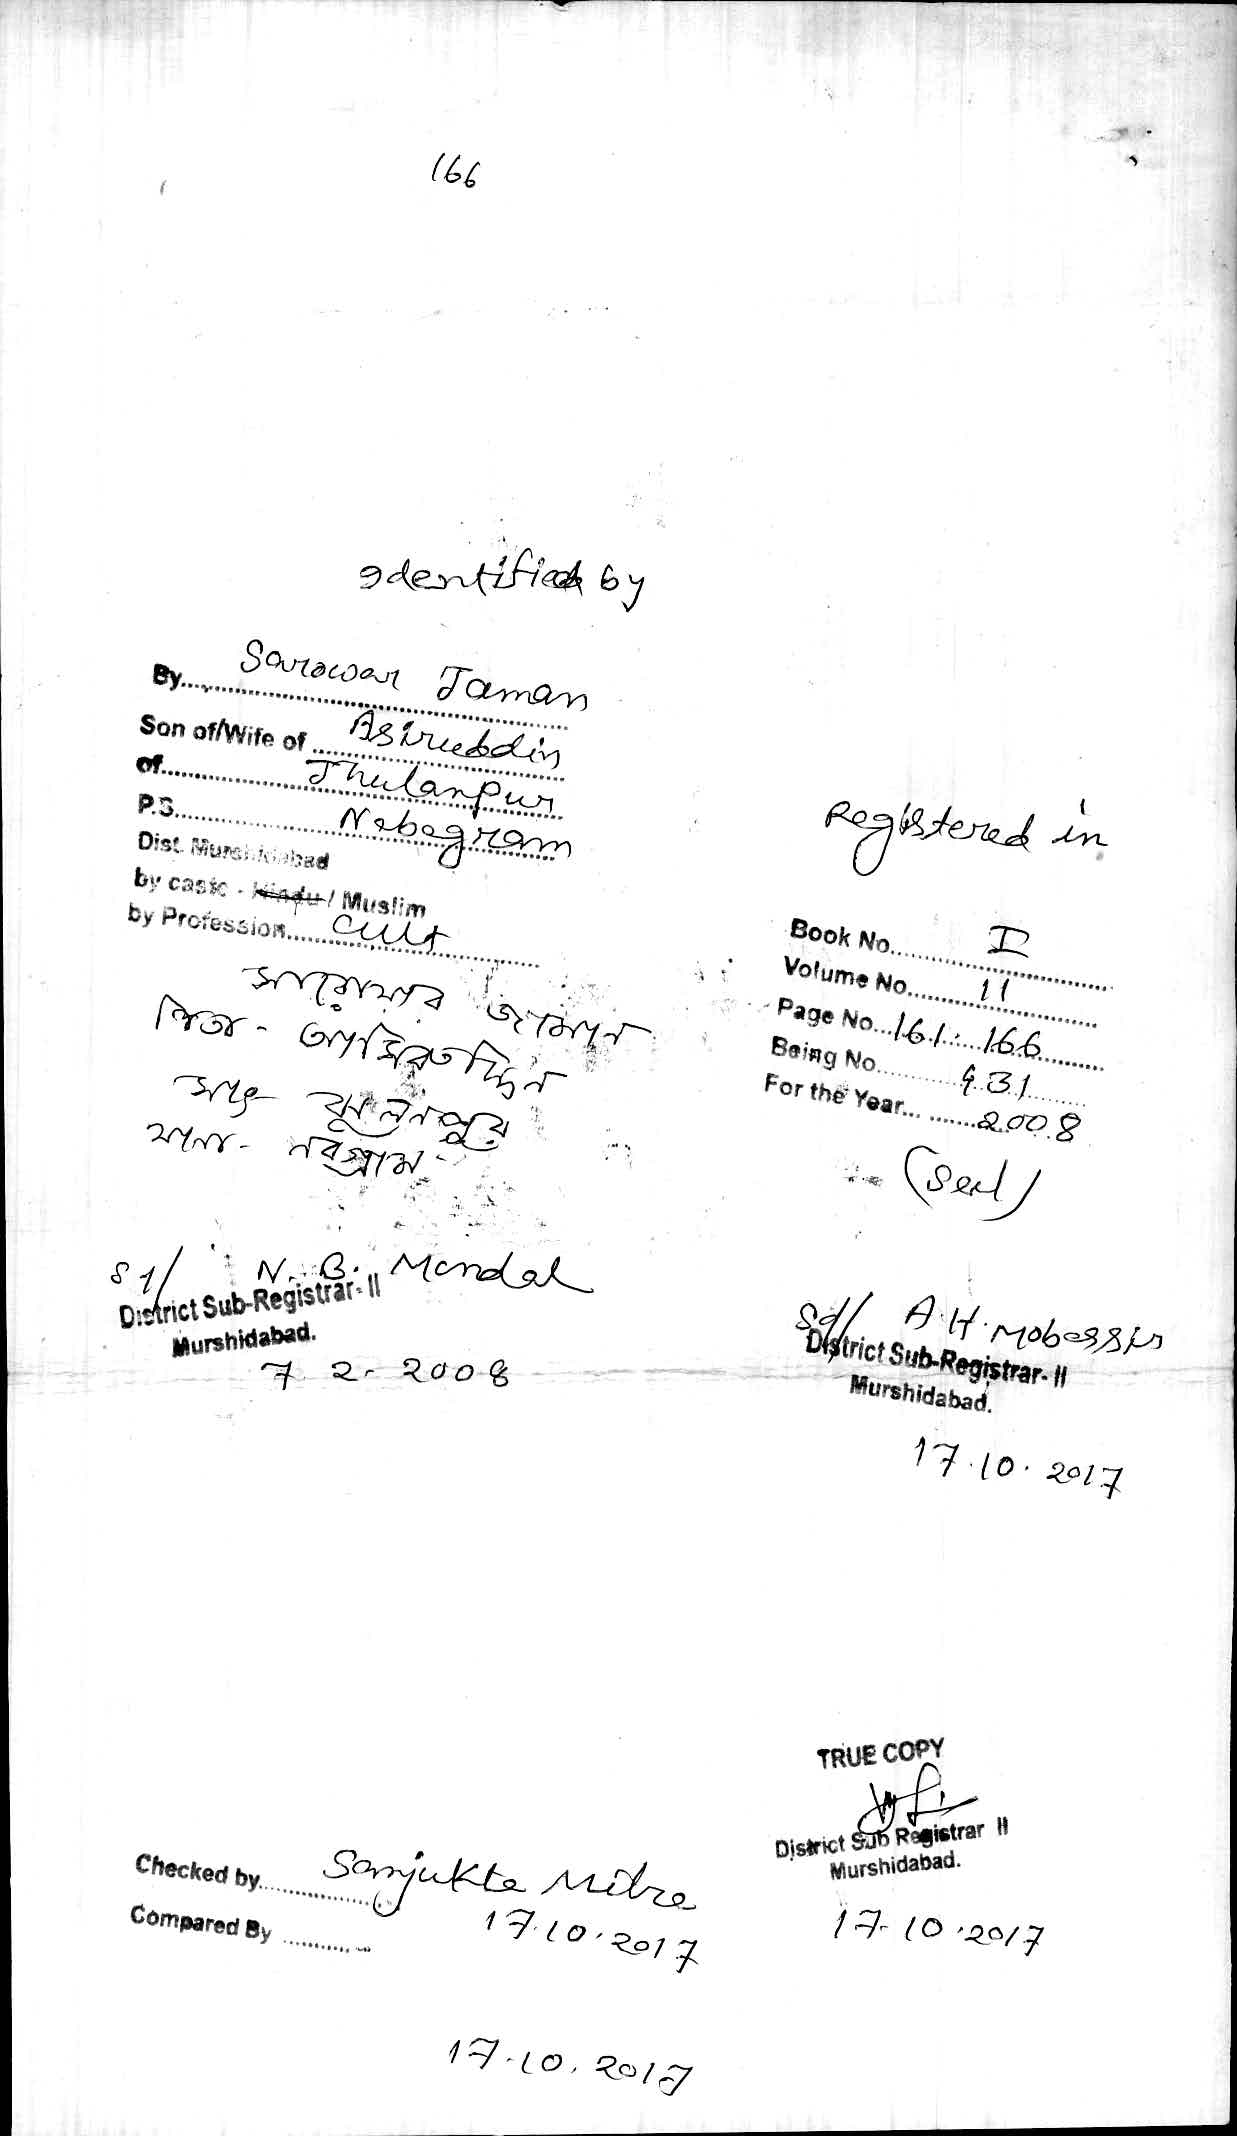 166
Identified by
By........ Sarowar Jaman
Son of/Wife of ........ Asiruddin
of........ Jhulanpur
P.S........ Nabagram
Dist. Murshidabad
by caste - Hindu / Muslim
by Profession........ Cult
সারোয়ার জামান
পিতা - আসিরুদ্দিন
সাং ঝুলনপুর
থানা - নবগ্রাম
Sd/ N. B. Mandal
District Sub-Registrar- II
Murshidabad.
7 2 - 2008
Registered in
Book No........ I
Volume No........ 11
Page No... 161 - 166
Being No........ 931
For the Year........ 2008
(Seal)
Sd/ A. H. Mobassir
District Sub-Registrar- II
Murshidabad.
17.10.2017
TRUE COPY
District Sub Registrar II
Murshidabad.
17-10-2017
Checked by........ Sanjukta Mitra
17.10.2017
Compared By ........
17.10.2017